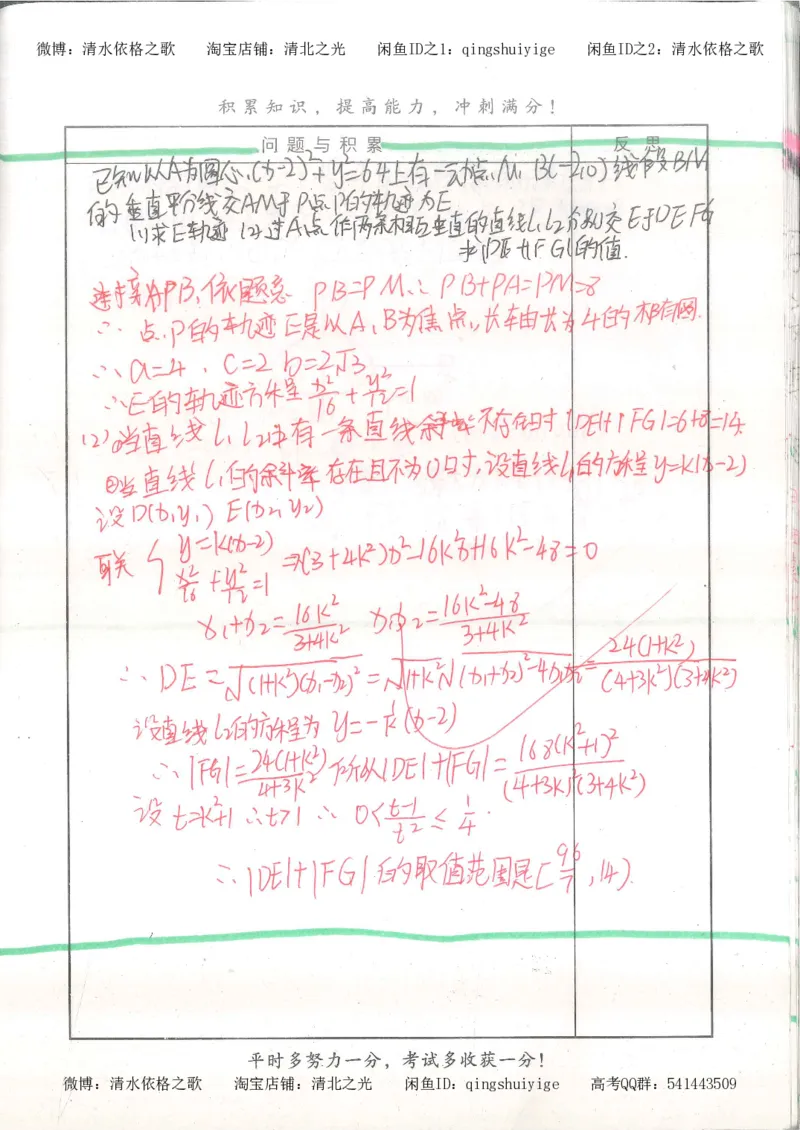 微博：清水依格之歌 淘宝店铺：清北之光 闲鱼ID之1：qingshuiyige 闲鱼ID之2：清水依格之歌
积累知识，提高能力，冲刺满分！
问题与积累 反思
已知以A为圆心,(x-2)²+y²=64上有一动点M, B(-2,0) 线段BM
的垂直平分线交AM于P点,P的轨迹为E
(1)求E轨迹 (2)过A点作两条相互垂直的直线l₁ l₂分别交E于DE FG
求|DE|+|FG|的值.
连接PB,依题意 PB=PM ∴ PB+PA=PM=8
∴ 点P的轨迹E是以A、B为焦点,长轴长为4的椭圆.
∴ a=4, c=2 b=2√3
∴E的轨迹方程是 x²/16 + y²/12 = 1
(2)①当直线l₁ l₂中有一条直线斜率不存在时 |DE|+|FG|=6+8=14.
②当直线l₁的斜率存在且不为0时,设直线l₁的方程是y=k(x-2)
设D(x₁y₁) E(x₂ y₂)
联 { y=k(x-2) x²/16 + y²/12 = 1 ⇒(3+4k²)x²-16k²x+16k²-48=0
x₁+x₂= 16k²/(3+4k²) x₁x₂= (16k²-48)/(3+4k²)
∴ DE = √((1+k²)(x₁-x₂)²) = √(1+k²)√((x₁+x₂)²-4x₁x₂) = 24(1+k²)/((4+3k²)(3+4k²))
设直线l₂的方程为 y=-1/k(x-2)
∴ |FG|= 24(1+k²)/(4+3k²) 所以|DE|+|FG|= 168(k²+1)²/((4+3k²)(3+4k²))
设 t=k²+1 ∴t>1 ∴ 0< (t-1)/t² ≤ 1/4.
∴|DE|+|FG|的取值范围是[96/7,14).
平时多努力一分，考试多收获一分！
微博：清水依格之歌 淘宝店铺：清北之光 闲鱼ID：qingshuiyige 高考QQ群：541443509